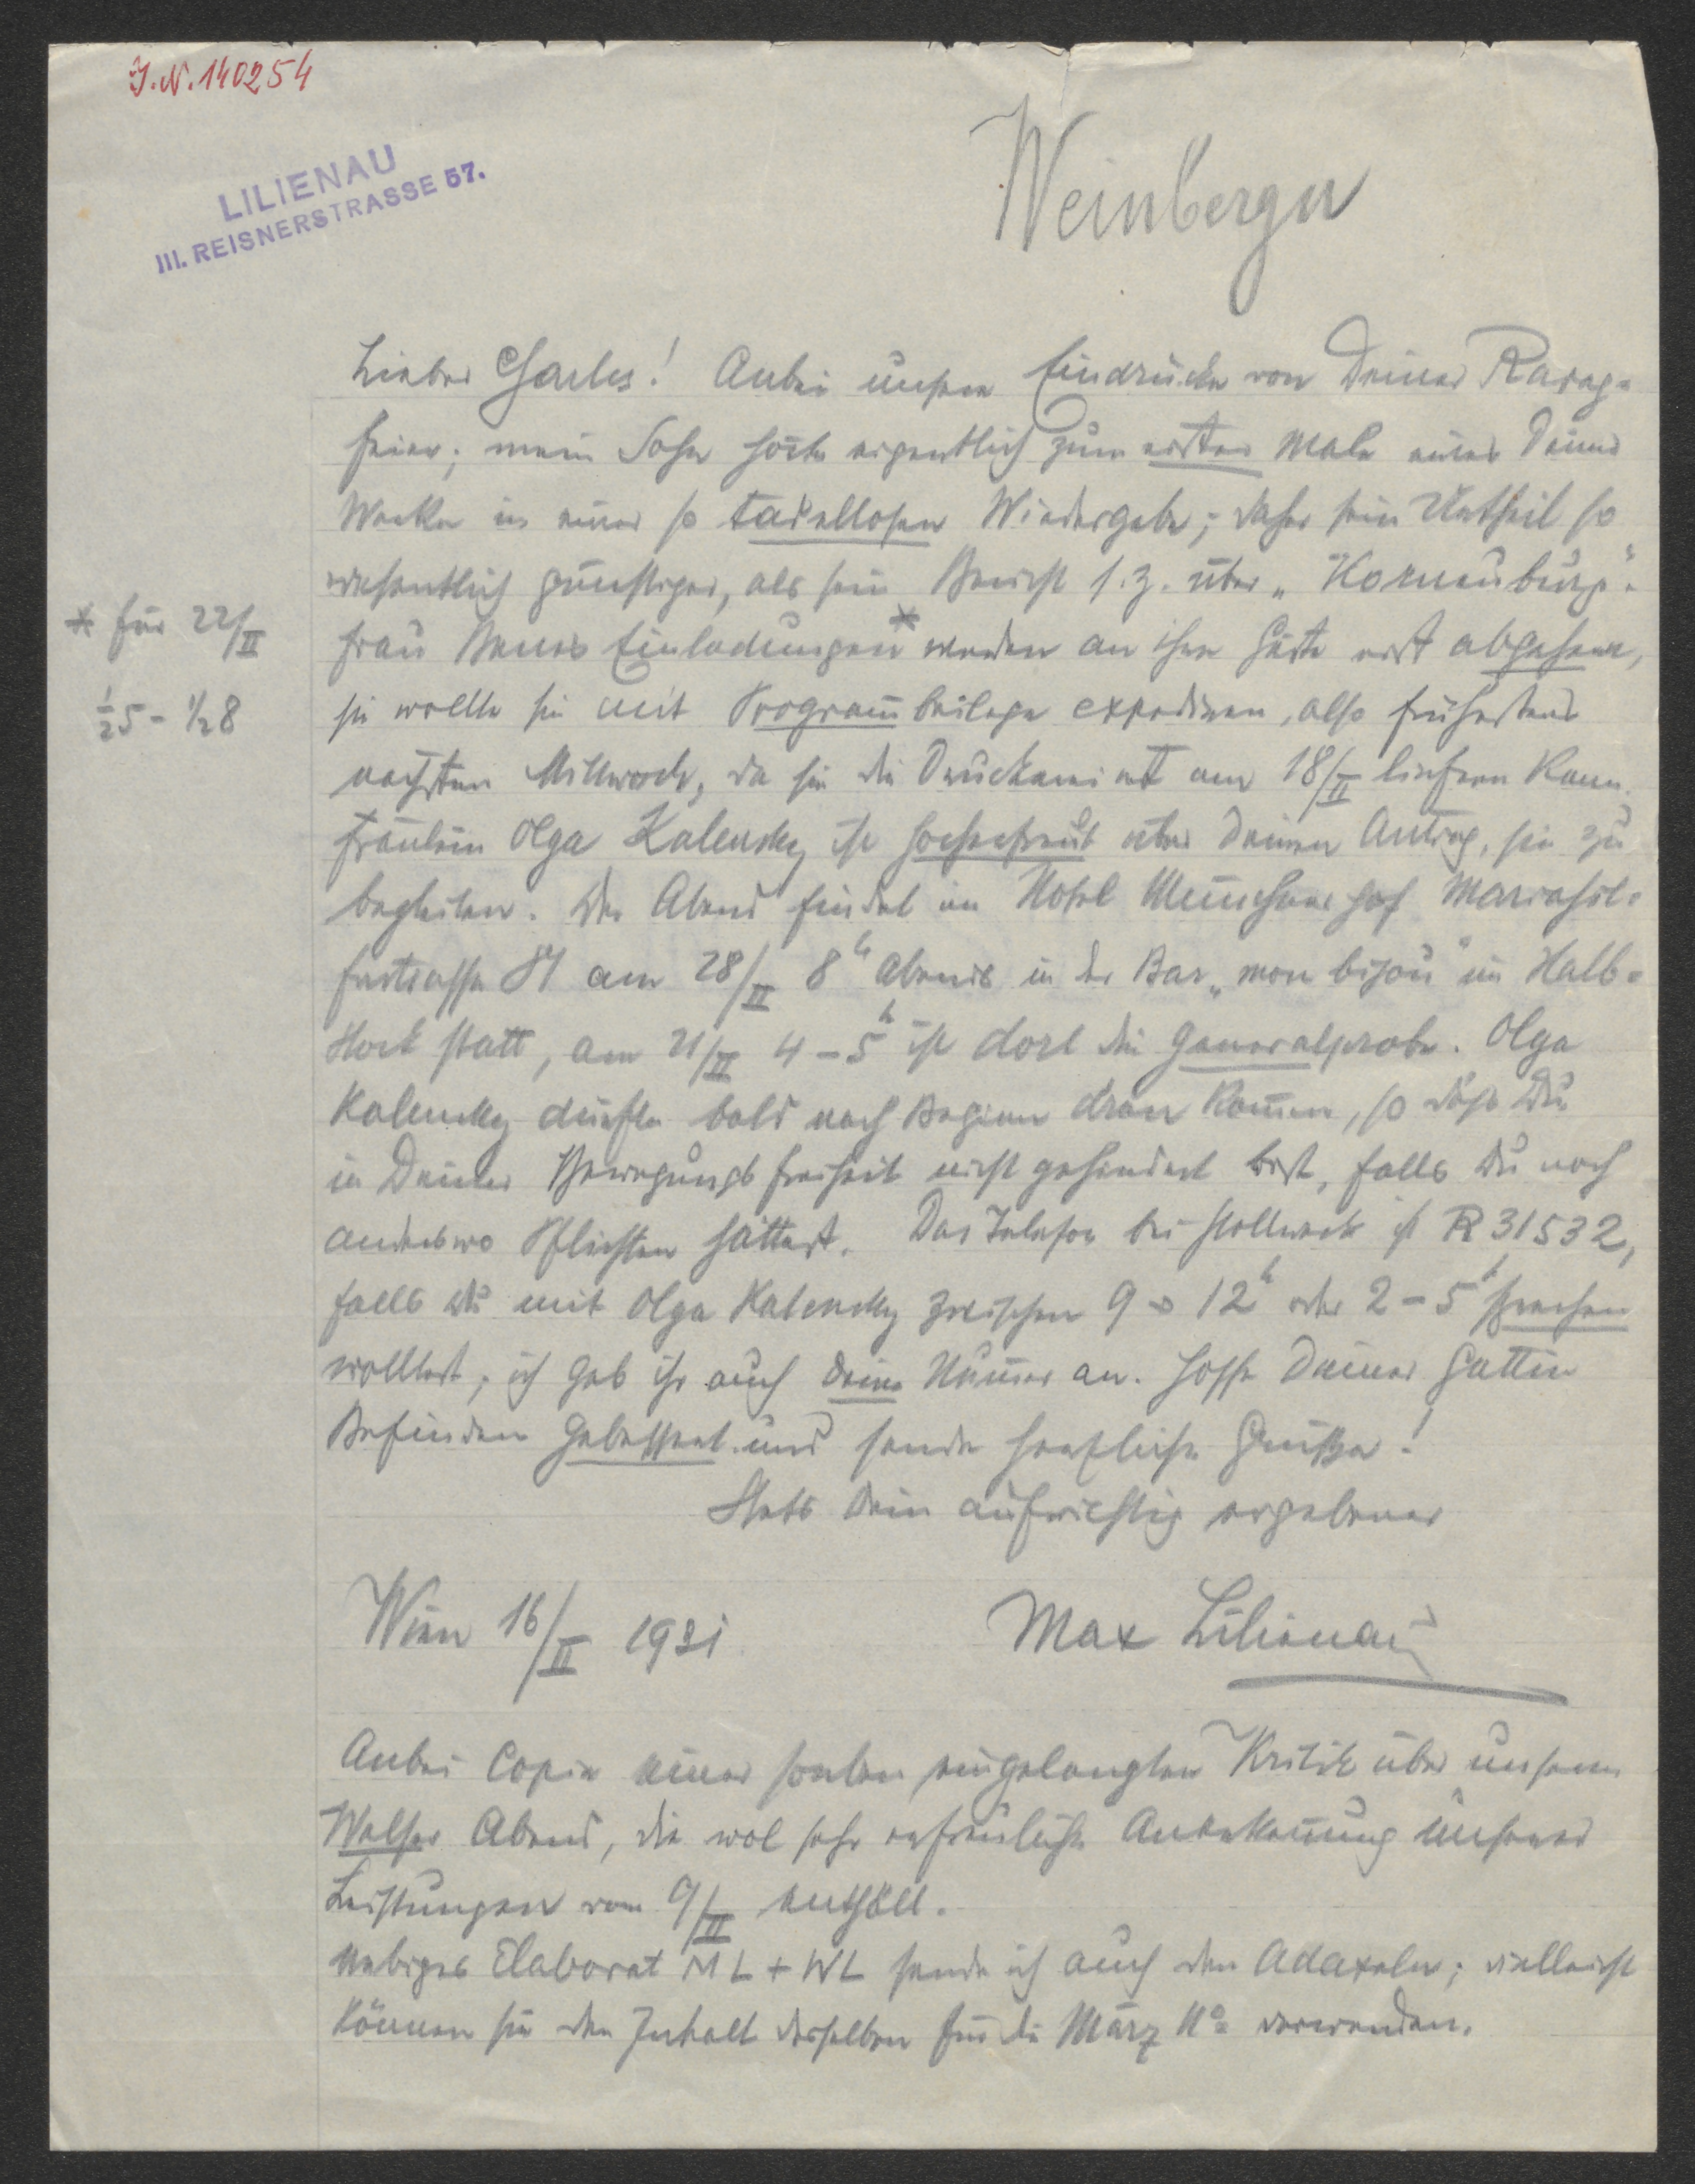 I.N. 140254
LILIENAU
III. REISNERSTRASSE 57.
Weinberger
Lieber Charles! Anbei unsere Eindrücke von Deiner Ravag-
feier; mein Sohn hörte eigentlich zum ersten Male eines Deiner
Werke in einer so tadellosen Wiedergabe; daher sein Urtheil so
wesentlich günstiger, als sein Bericht s. z. über „Korneuburg".
Frau Einladungen * werden an ihre Gäste erst abgehen,
* für 22/II
sie wollte sie mit Programmbeilage expediren, also frühestens
½5 - ½8
nächsten Mittwoch, da sie die Druckerei erst am 18/II liefern kann.
Fräulein Olga Kalensky ist hocherfreut über Deinen Antrag, sie zu
begleiten. Der Abend findet im Hotel Münchner Hof Mariahil-
ferstrasse 81 am 28/II 8h Abends in der Bar „mon bijou" im Halb-
stock statt, am 21/II 4-5h ist dort die Generalprobe. Olga
Kalensky dürfte bald nach Beginn dran kommen, so daß Du
in Deiner Bewegungsfreiheit nicht gehindert bist, falls Du noch
anderswo Pflichten hättest. Das Telefon bei Stollwerk ist R 31532,
falls Du mit Olga Kalensky zwischen 9-12h oder 2-5h sprechen
wolltest, ich gab ihr auch Deine Nummer an. Hoffe Deiner Gattin
Befinden gebessert und sende herzliche Grüße!
Stets Dein aufrichtig ergebener
Wien 16/II 1931
Max Lilienau
Anbei Copie einer soeben eingelangten Kritik über unseren
Welser Abend, die wol sehr erfreuliche Anerkennung unserer
Leistungen vom 9/II enthält.
Elaborat ML + WL sende ich auch den Adaxeln; vielleicht
können sie den Inhalt desselben für die März No verwenden.